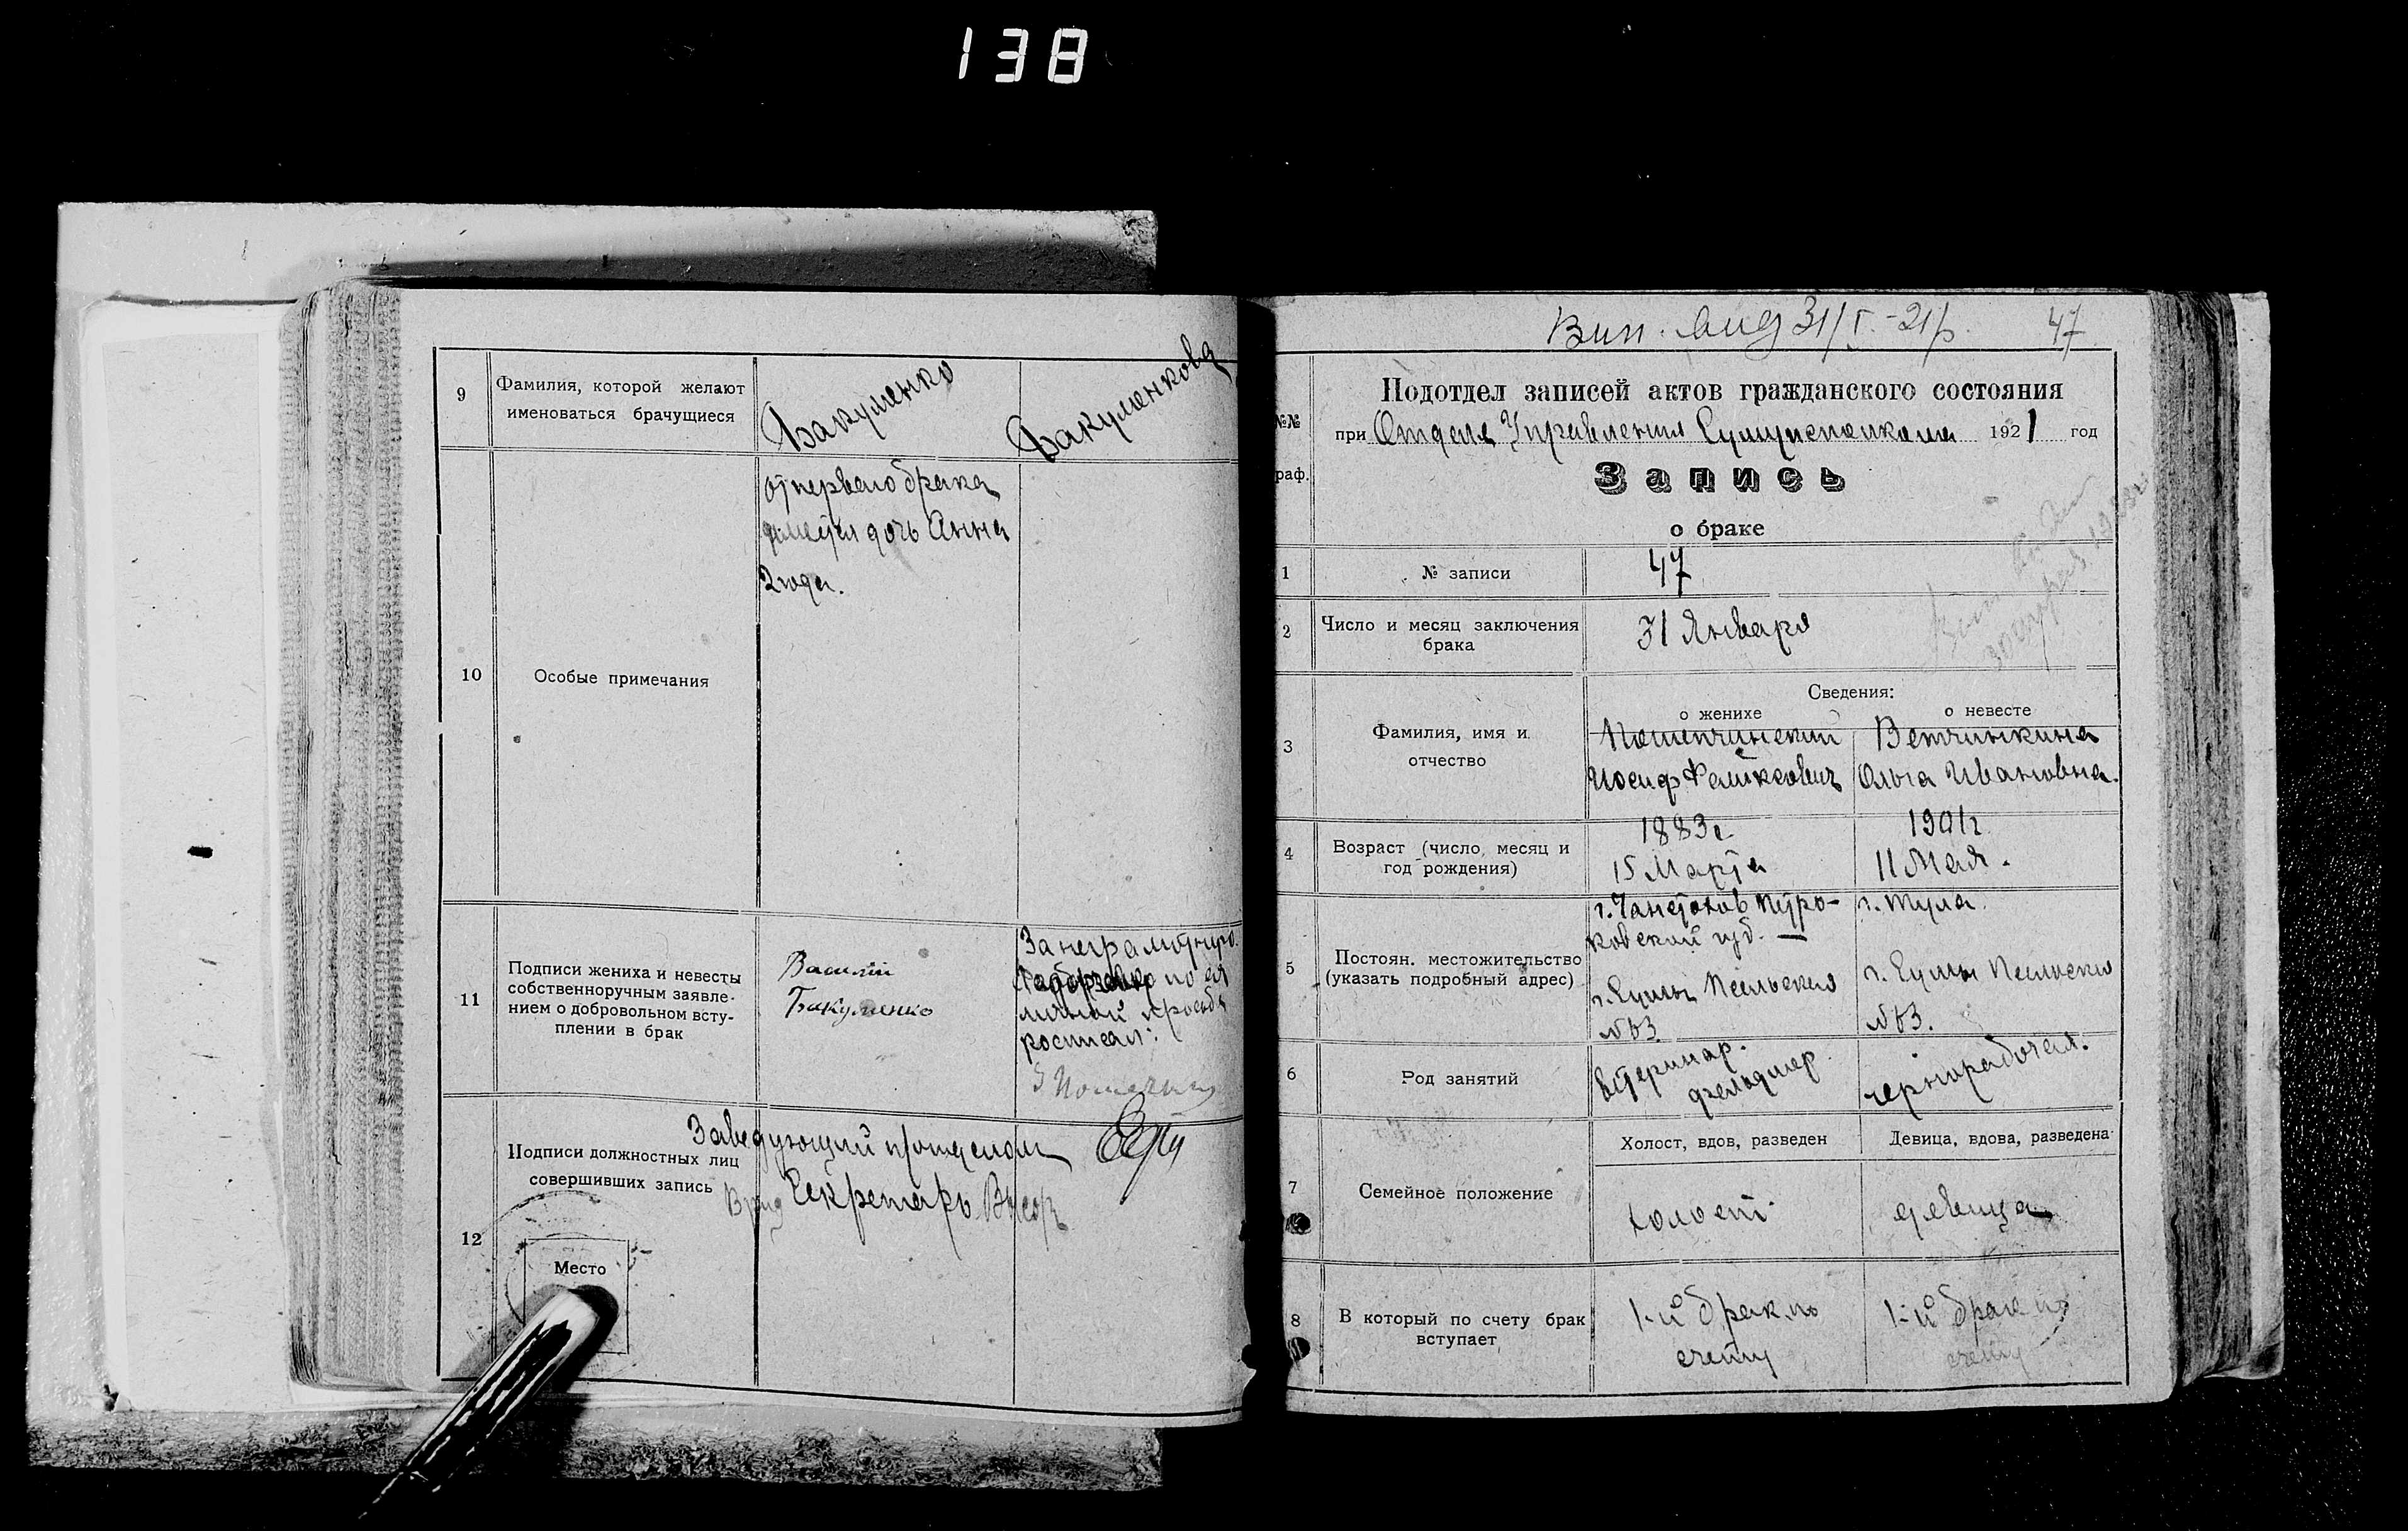 138
9
Фамилия, которой желают
именоваться брачущиеся
Бакуменко
Бакуменкова
10
Особые примечания
от первого брака
имеется дочь Анна
2 года.
11
Подписи жениха и невесты
собственноручным заявле-
нием о добровольном всту-
плении в брак
Василий
Бакуменко
За неграмотную
по ея
личной просьбе
росписал:
12
Подписи должностных лиц
совершивших запись
Заведующий п/отделом
Врид Секретарь
Место
Вип. вид 31/I-21р.
47
№№
граф.
Подотдел записей актов гражданского состояния
при Отделе Управления Сумуисполкома 1921 год
Запись
о браке
1
№ записи
47
2
Число и месяц заключения
брака
31 Января
3
Фамилия, имя и
отчество
Сведения:
о женихе
о невесте
Ветчинкина
Иосиф
Ольга Ивановна.
4
Возраст (число, месяц и
год рождения)
1883 г.
15 Марта
1901 г.
11 Мая.
5
Постоян. местожительство
(указать подробный адрес)
г. Ченстохов Петро-
ковской губ. —
г. Сумы Псельская
№ 63
г. Тула.
г. Сумы Псельская
№ 63.
6
Род занятий
ветеринар.
фельдшер
чернорабочая.
7
Семейное положение
Холост, вдов, разведен
Девица, вдова, разведена
холост
девица
8
В который по счету брак
вступает
1-й брак по
счету
1-й брак по
счету